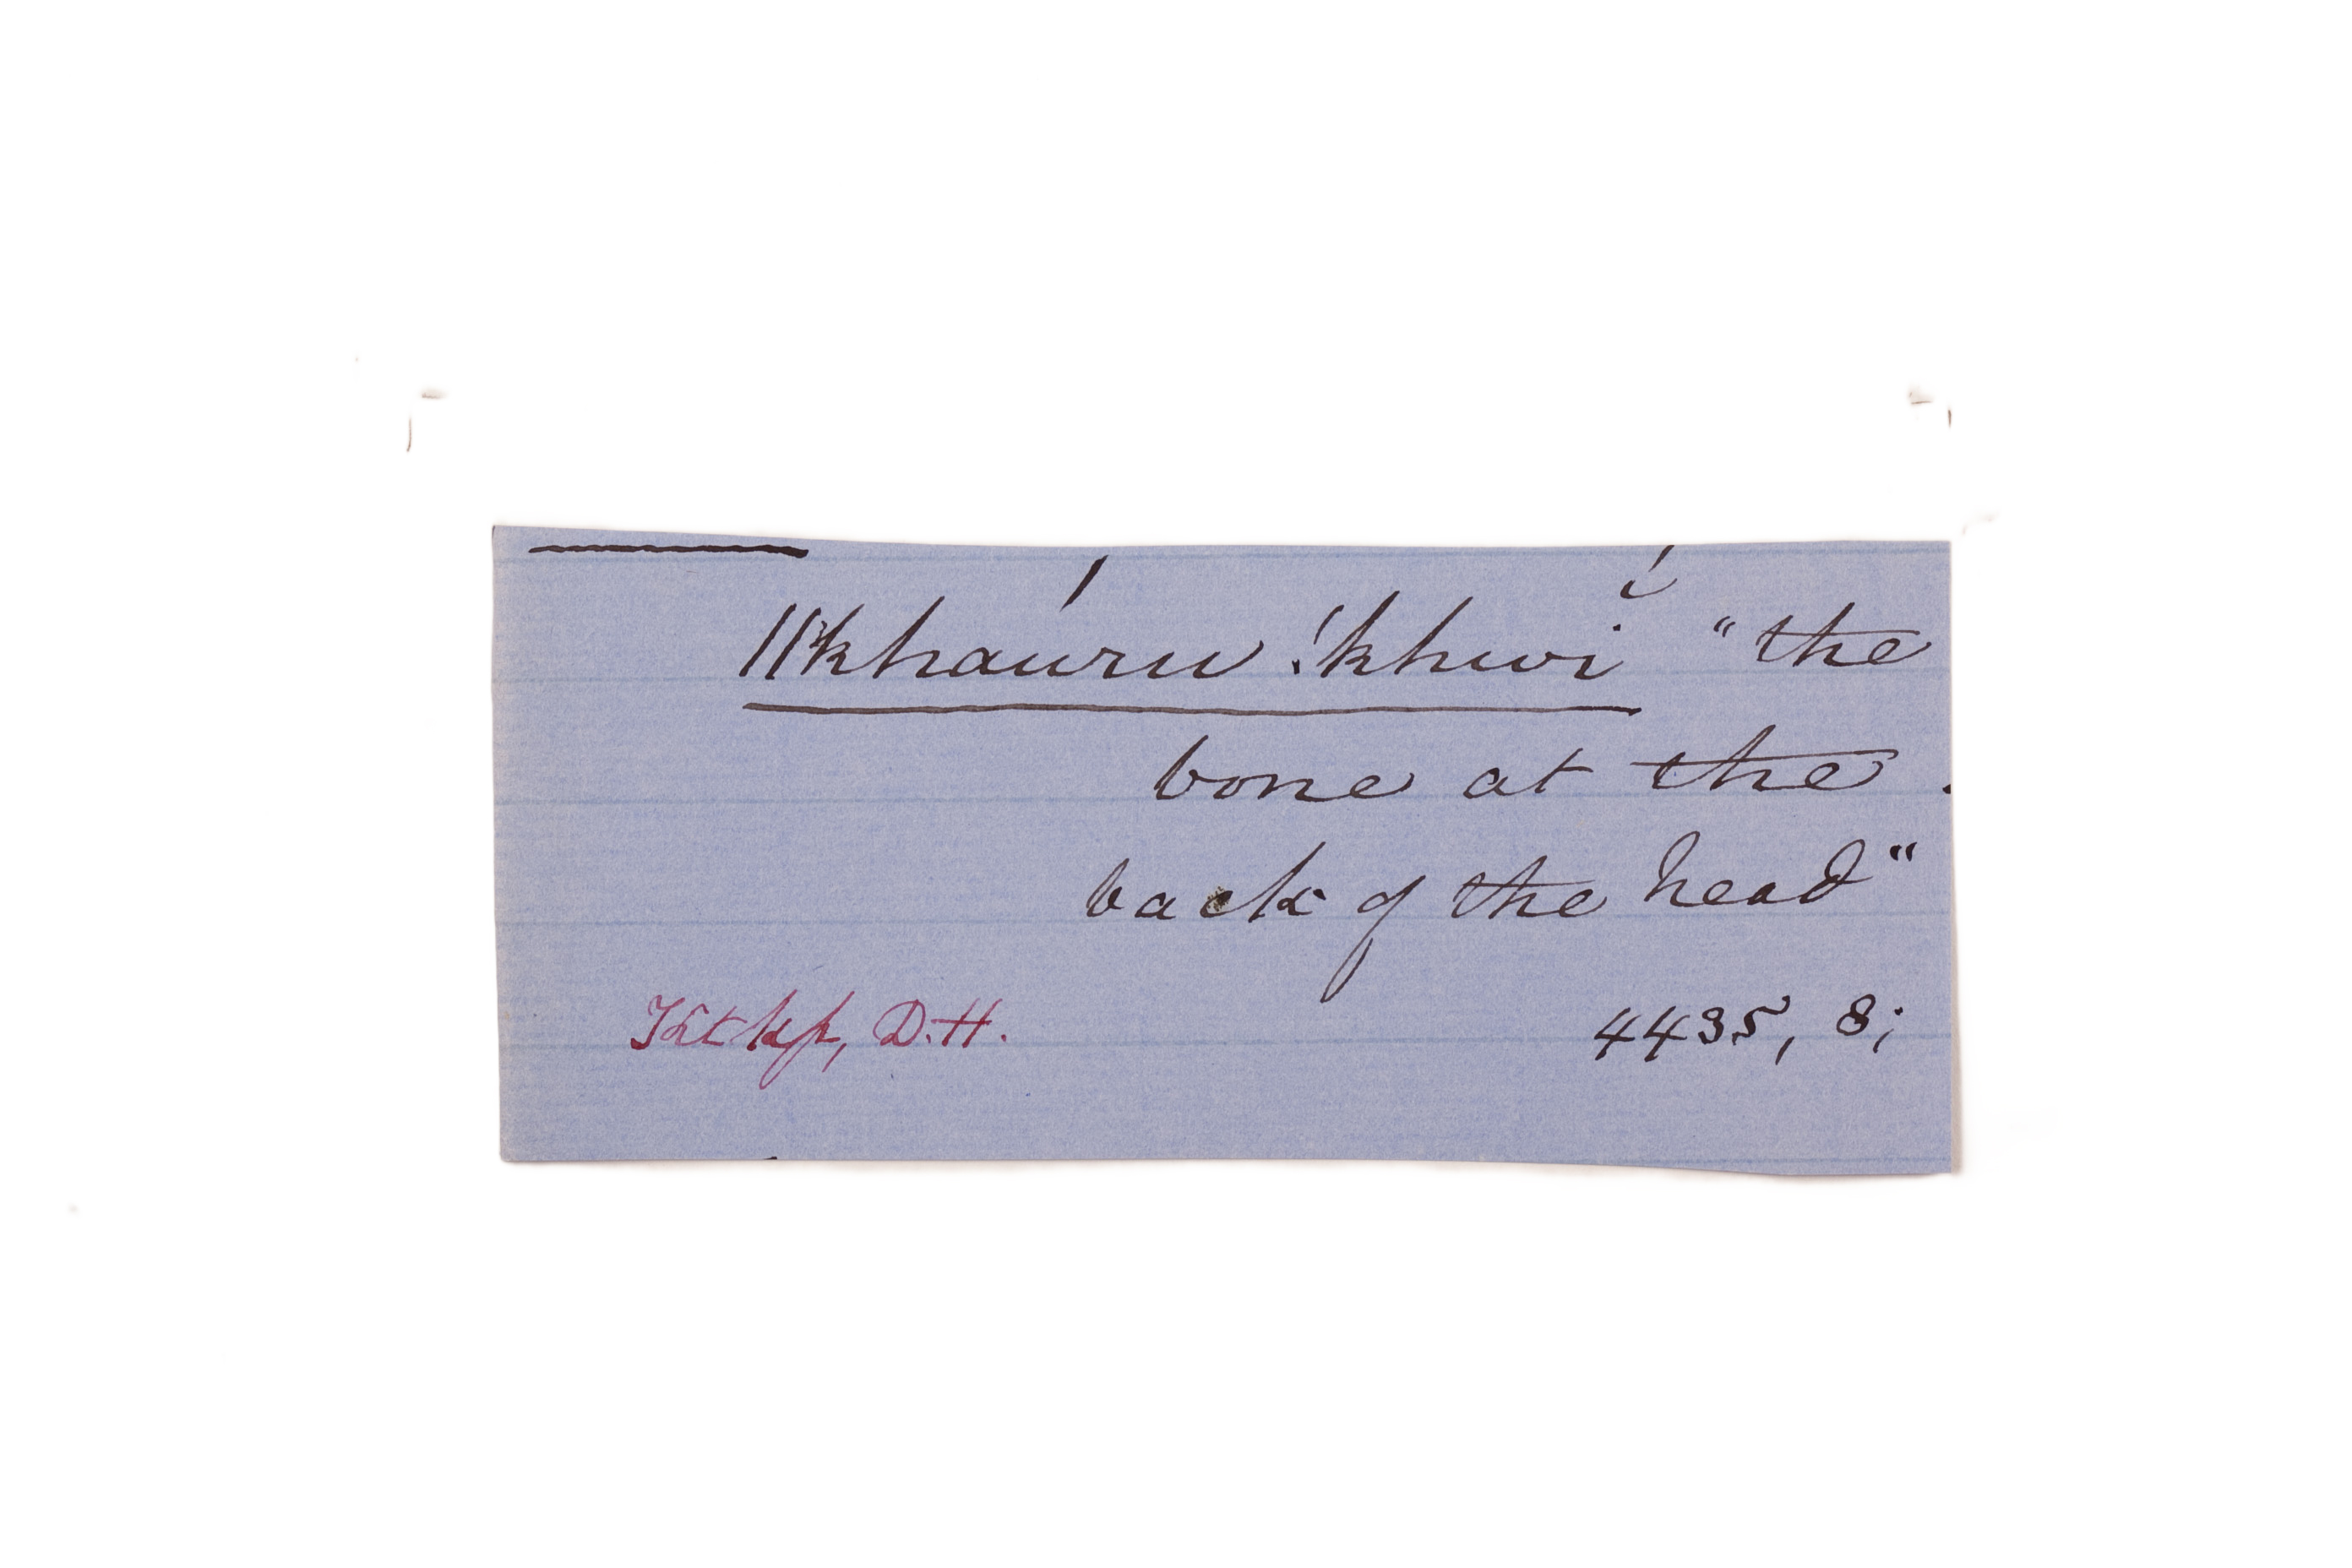 ǁkhaúru !khwĭ́ "the
bone at the
back of the head"
D.H. 4435, 8;